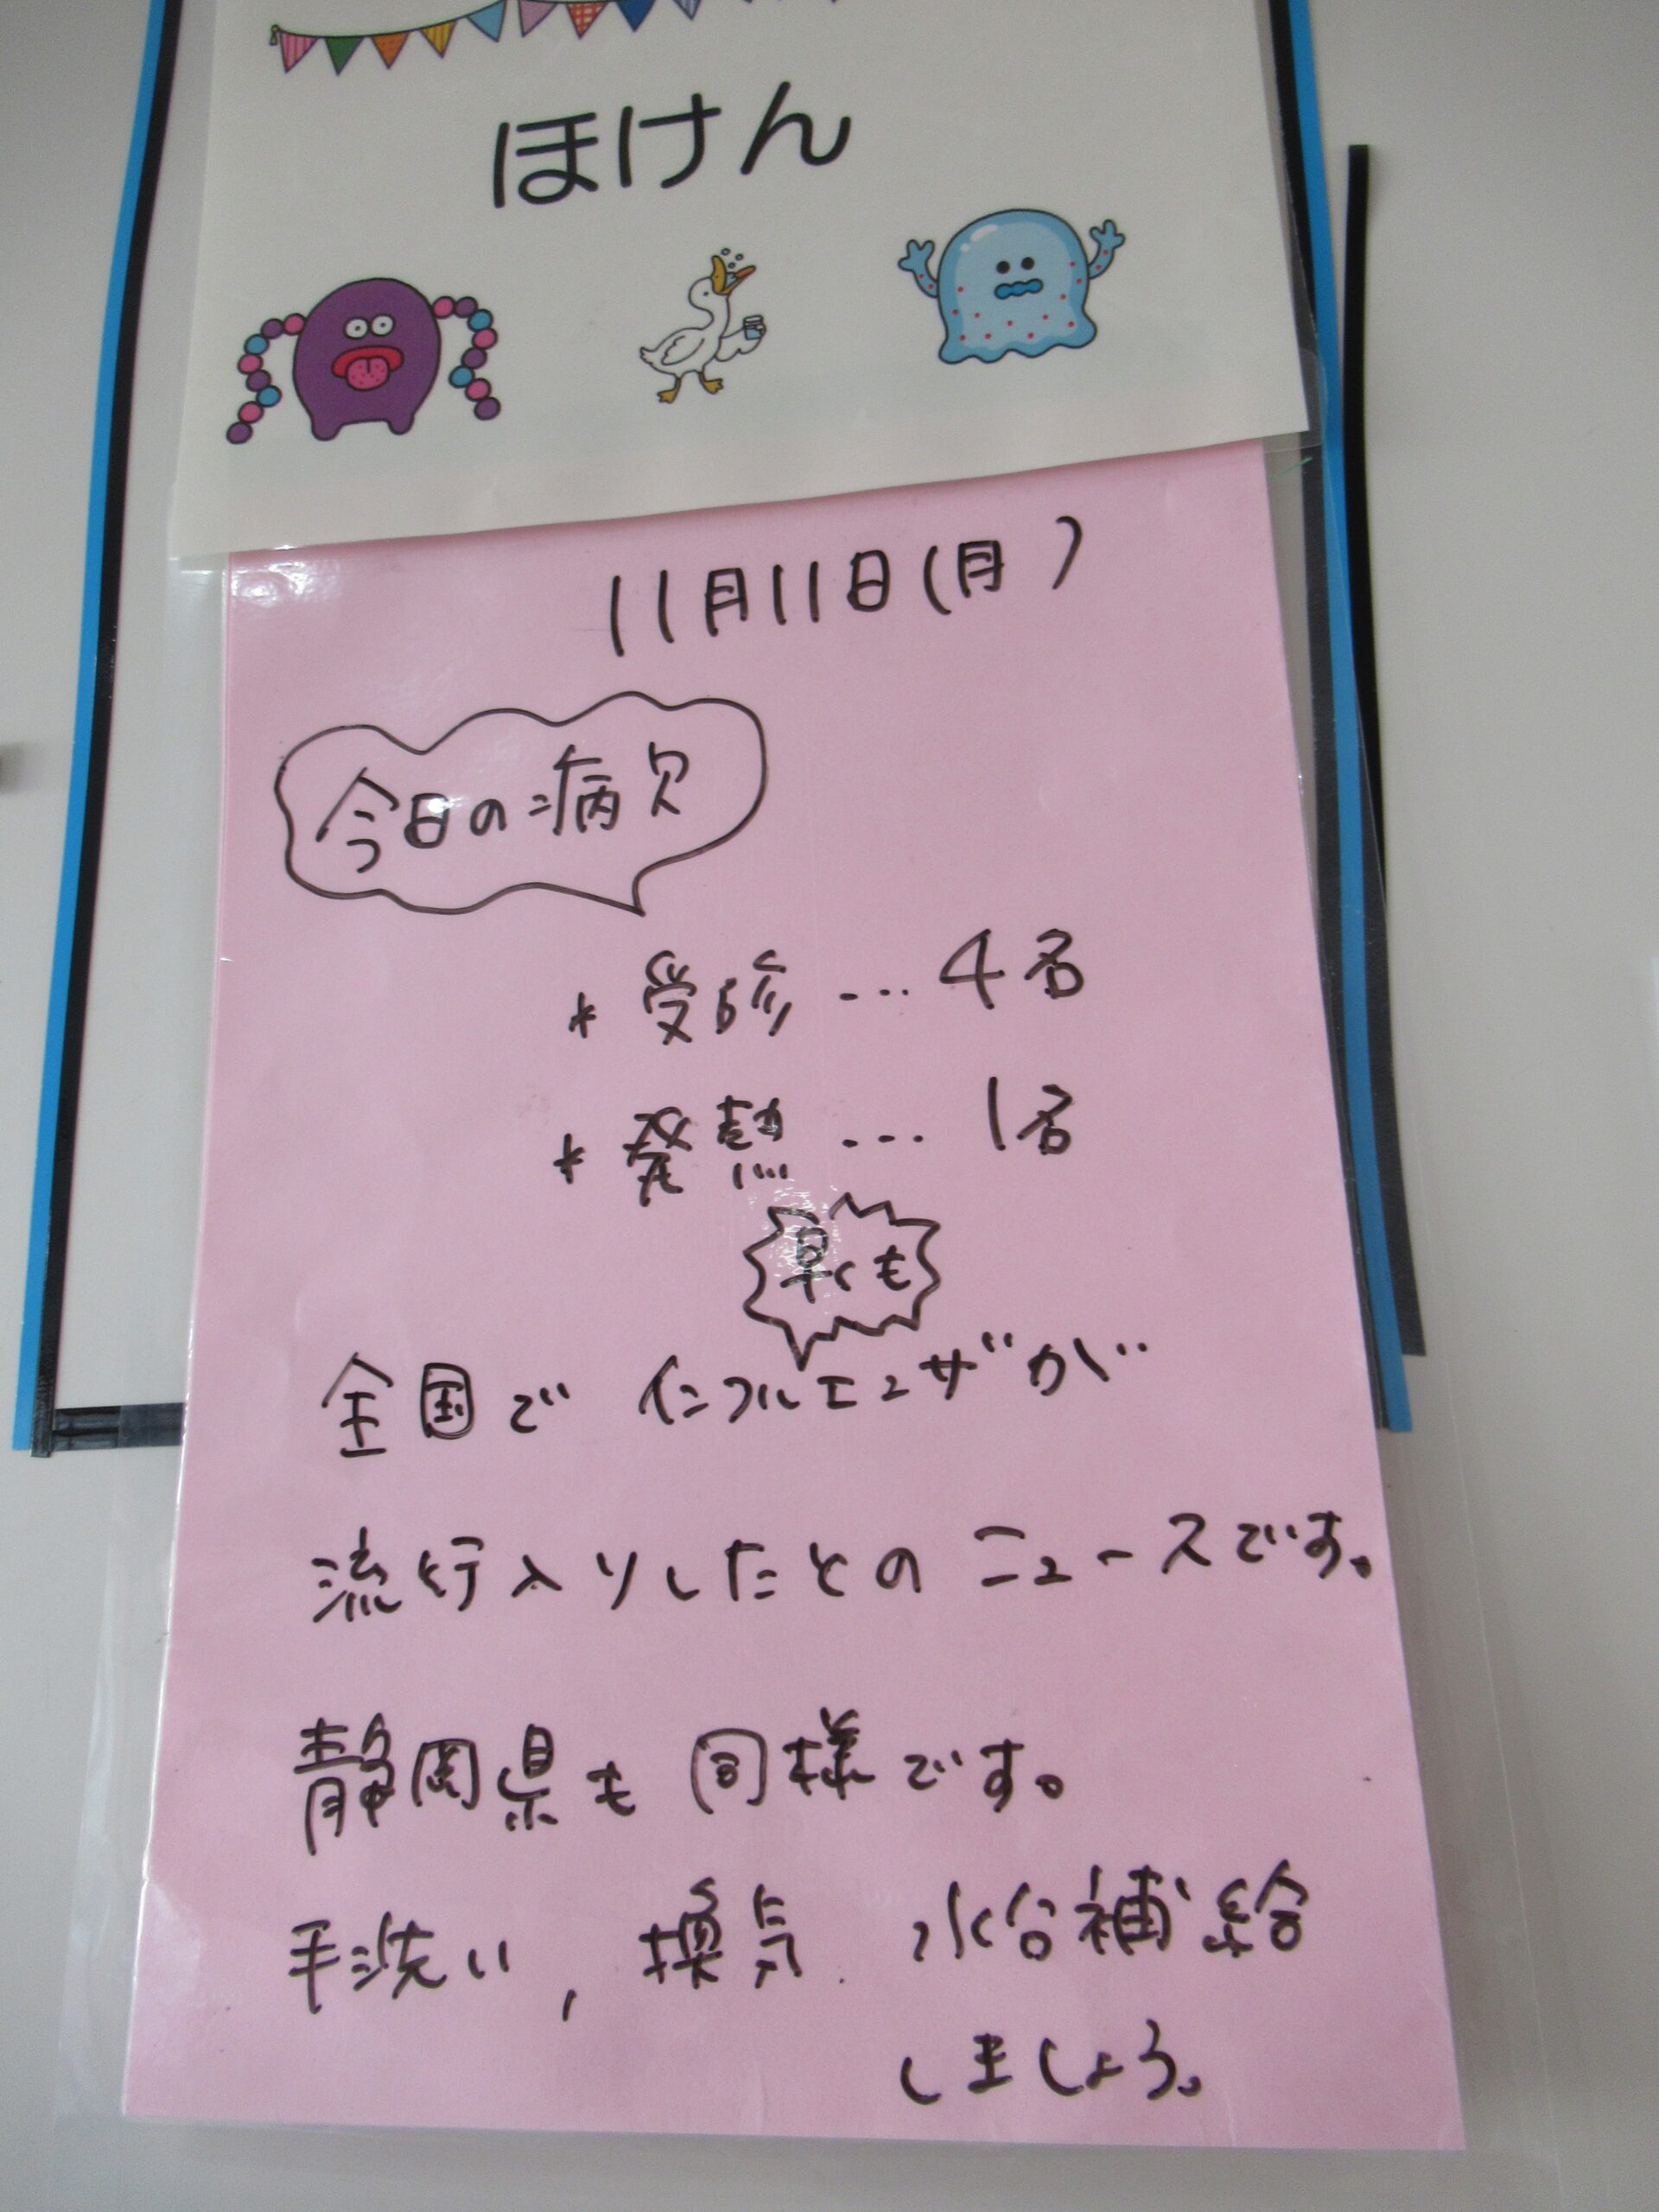 ほけん
11月11日(月)
今日の病欠
* 受診 … 4名
* 発熱 … 1名
早くも
全国で インフルエンザが
流行入りしたとの ニュースです。
静岡県も 同様です。
手洗い, 換気. 水分補給
しましょう。